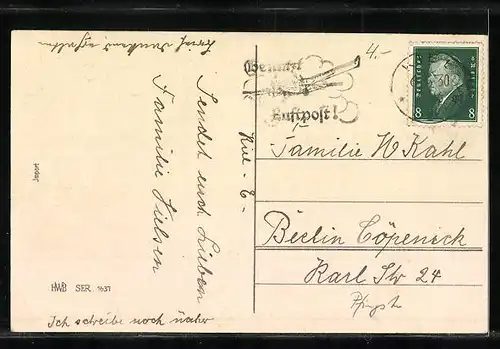 Sendet euch Lieben
Familie Nielsen
Ich schreibe noch näher
Import
HWB SER. 1637
4.-
Benutzt
die
Luftpost!
30
Deutsches Reich
8 8
Familie W Kahl
Berlin Cöpenick
Karl Str 24
Pfingst